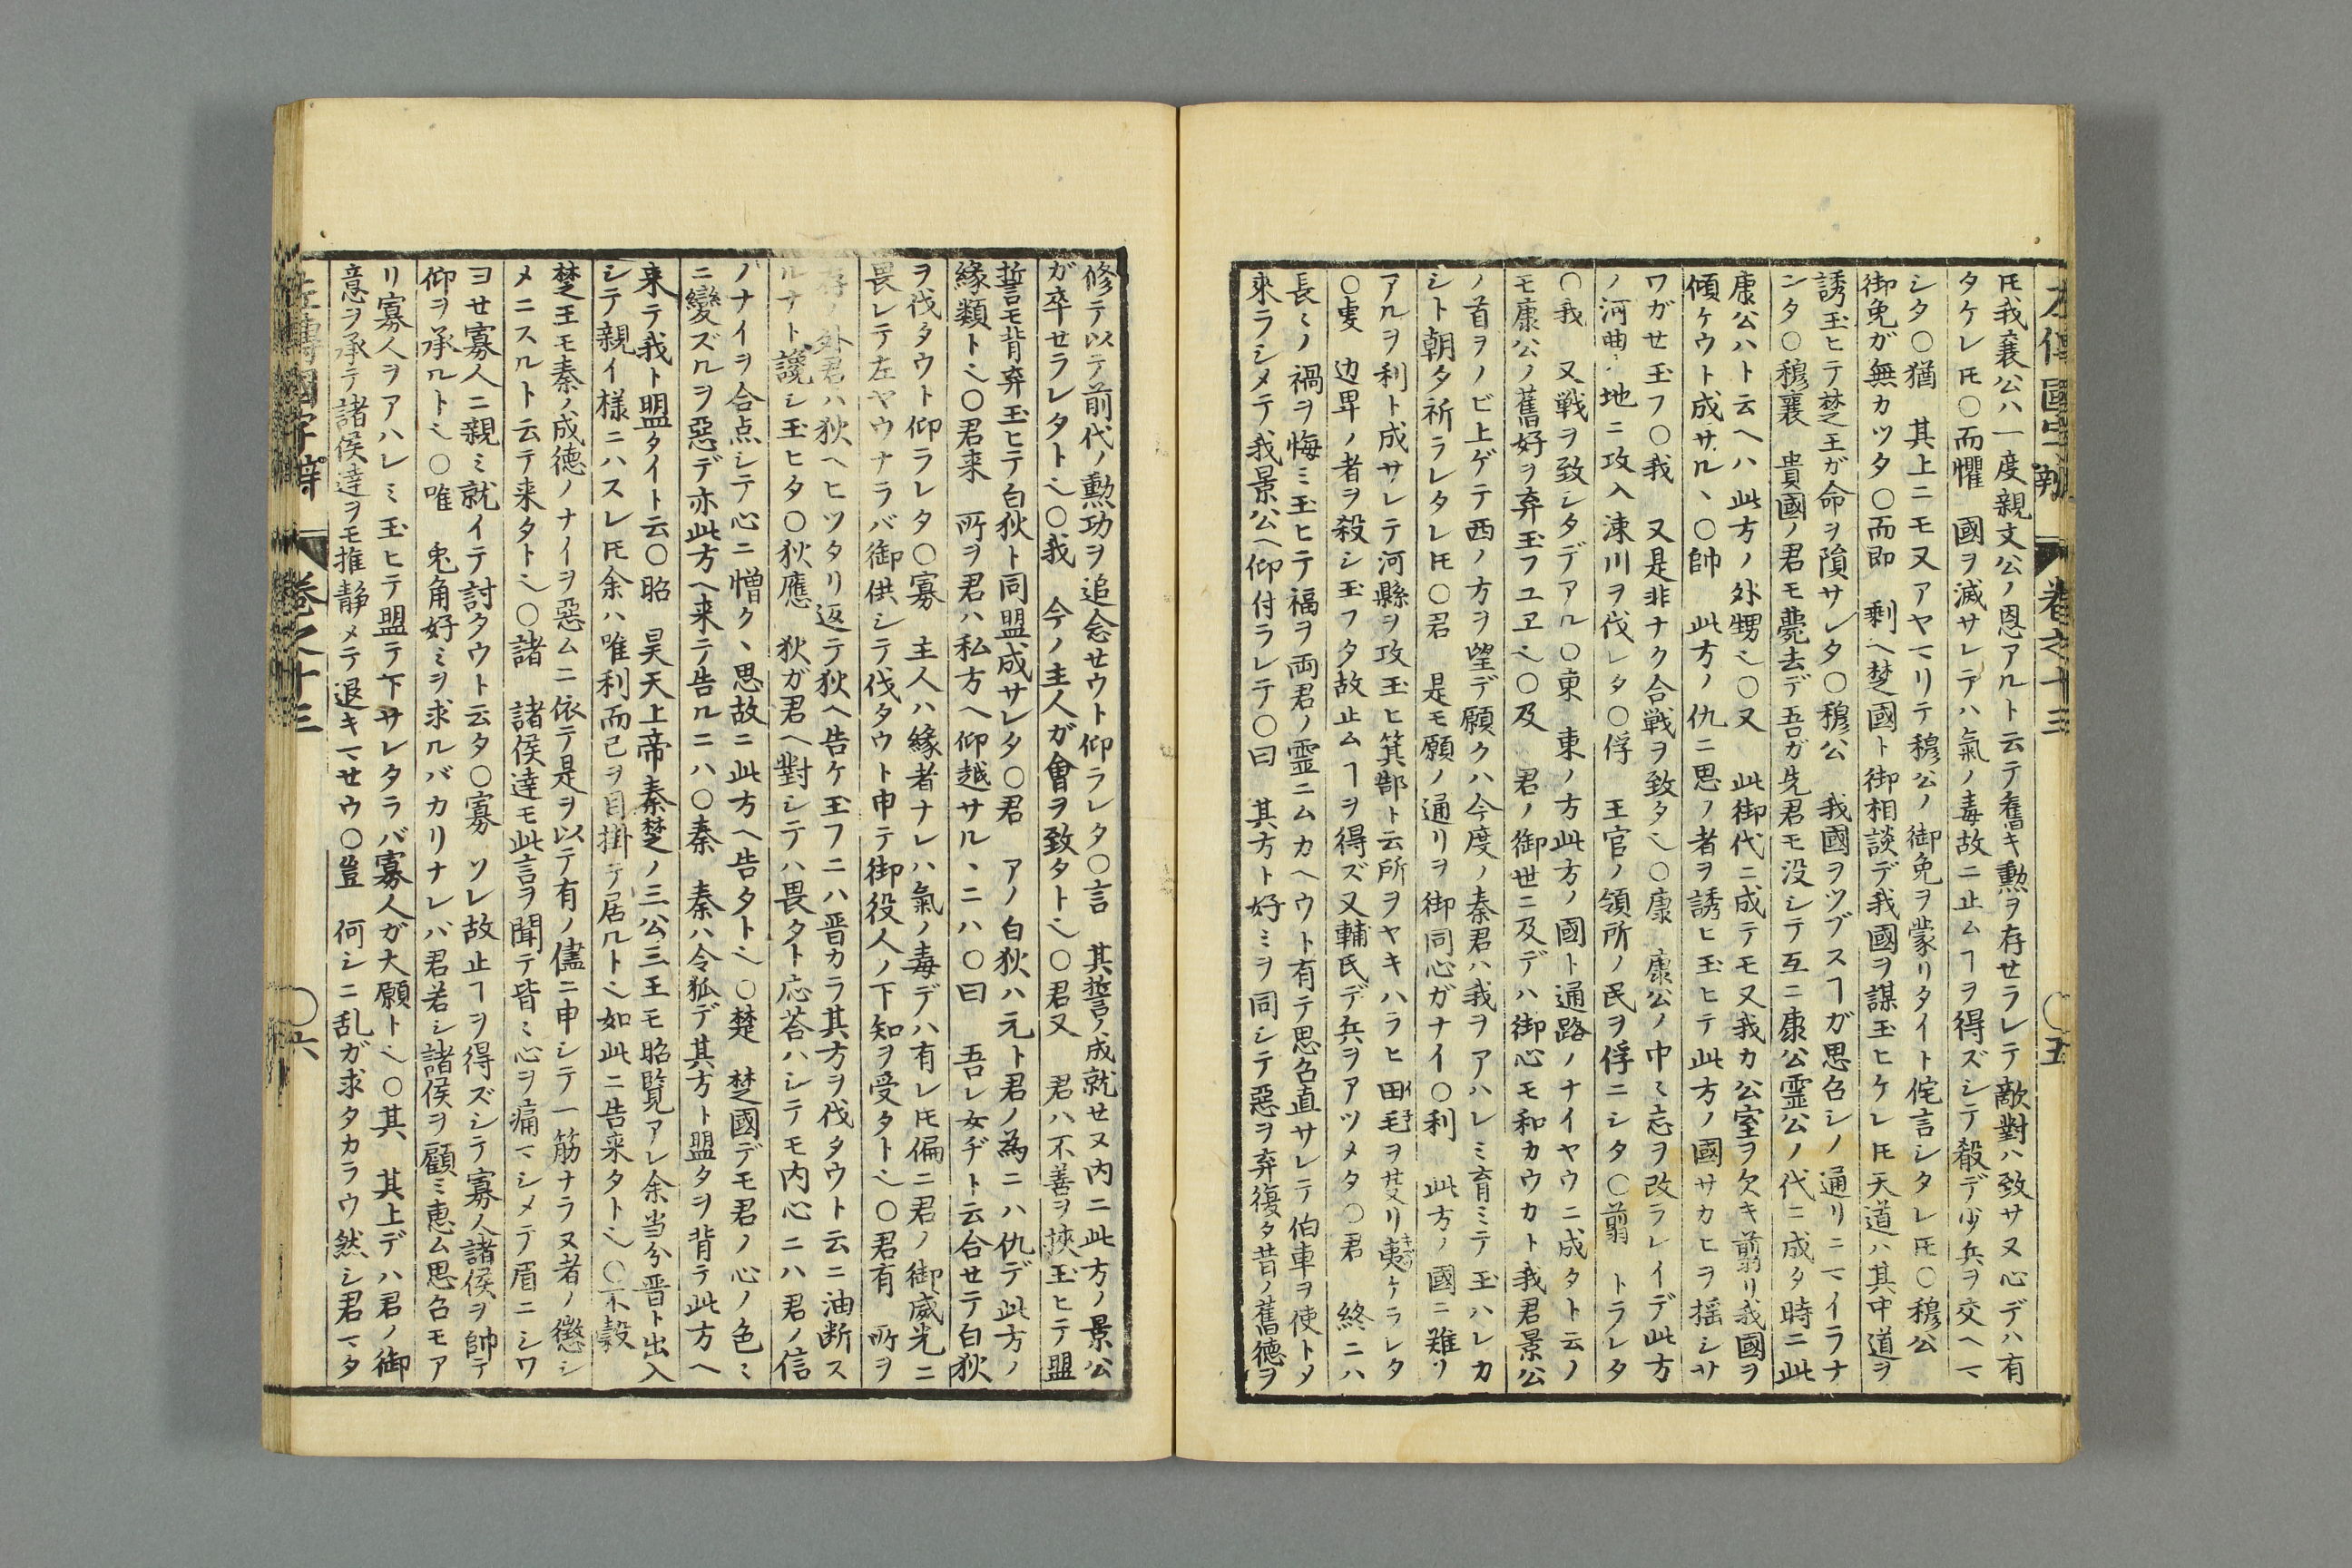 左傳國字辯 巻之十三 〇五
𪜈我襄公ハ一度親文公ノ恩アルト云テ舊キ勲ヲ存セラレテ敵對ハ致サヌ心デハ有
タケレ𪜈〇而懼 國ヲ滅サレテハ氣ノ毒故ニ止ムヿヲ得ズシテ殽デ少兵ヲ交ヘマ
シタ〇猶 其上ニモ又アヤマリテ穆公ノ御免ヲ蒙リタイト侘言シタレ𪜈〇穆公
御免ガ無カツタ〇而即 剰ヘ楚國ト御相談デ我國ヲ謀玉ヒケレ𪜈天道ハ其中道ヲ
誘玉ヒテ楚王ガ命ヲ隕サレタ〇穆公 我國ヲツブスヿガ思召シノ通リニマイラナ
ンタ〇穆襄 貴國ノ君モ薨去デ吾ガ先君モ没シテ互ニ康公霊公ノ代ニ成タ時ニ此
康公ハト云ヘハ此方ノ外甥〻〇又 此御代ニ成テモ又我カ公室ヲ欠キ翦リ我國ヲ
傾ケウト成サル、〇帥 此方ノ仇ニ思ノ者ヲ誘ヒ玉ヒテ此方ノ國サカヒヲ揺シサ
ワガセ玉フ〇我 又是非ナク合戦ヲ致タ〻〇康 康公ノ中ミ忘ヲ改ラレイデ此方
ノ河曲ノ地ニ攻入涑川ヲ伐レタ〇俘 王官ノ領所ノ民ヲ俘ニシタ〇翦 トラレタ
〇我 又戦ヲ致シタデアル〇東 東ノ方此方ノ國ト通路ノナイヤウニ成タト云ノ
モ康公ノ舊好ヲ弃玉フユヱ〻〇及 君ノ御世ニ及デハ御心モ和カウカト我君景公
ノ首ヲノビ上ゲテ西ノ方ヲ望デ願クハ今度ノ秦君ハ我ヲアハレミ育ミテ玉ハレカ
シト朝タ祈ラレタレ𪜈〇君 是モ願ノ通リヲ御同心ガナイ〇利 此方ノ國ニ難ノ
アルヲ利ト成サレテ河縣ヲ攻玉ヒ箕郜ト云所ヲヤキハラヒ田毛ヲ芟リ夷ケラレタ
〇虔 边畢ノ者ヲ殺シ玉フタ故止ムヿヲ得ズ又輔氏デ兵ヲアツメタ〇君 終ニハ
長〻ノ禍ヲ悔ミ玉ヒテ福ヲ両君ノ霊ニムカヘウト有テ思召直サレテ伯車ヲ使トメ
來ラシメテ我景公ヘ仰付ラレテ〇曰 其方ト好ミヲ同シテ惡ヲ弃復タ昔ノ舊德ヲ
修テ以テ前代ノ勲功ヲ追念セウト仰ラレタ〇言 其誓ノ成就セヌ内ニ此方ノ景公
ガ卒セラレタト〻〇我 今ノ主人ガ會ヲ致タト〻〇君又 君ハ不善ヲ挾玉ヒテ盟
誓モ背弃玉ヒテ白狄ト同盟成サレタ〇君 アノ白狄ハ元ト君ノ為ニハ仇デ此方ノ
緣類ト〻〇君来 所ヲ君ハ私方ヘ仰越サル、ニハ〇曰 吾レ女ヂト云合セテ白狄
ヲ伐タウト仰ラレタ〇寡 主人ハ緣者ナレハ氣ノ毒デハ有レ𪜈偏ニ君ノ御威光ニ
畏レテ左ヤウナラバ御供シテ伐タウト申テ御役人ノ下知ヲ受タト〻〇君有 所ヲ
存ノ外君ハ狄ヘヒツタリ返テ狄ヘ告ケ玉フニハ晋カラ其方ヲ伐タウト云ニ油断ス
ルナト讒シ玉ヒタ〇狄應 狄ガ君ヘ對シテハ畏タト応荅ハシテモ内心ニハ君ノ信
ノナイヲ合点シテ心ニ憎ク、思故ニ此方ヘ告タト〻〇楚 楚國デモ君ノ心ノ色ミ
ニ變ズルヲ惡デ亦此方ヘ来テ告ルニハ〇秦 秦ハ令狐デ其方ト盟タヲ背テ此方ヘ
来テ我ト盟タイト云〇昭 昊天上帝秦楚ノ三公三王モ昭覧アレ余当分晋ト出入
シテ親イ様ニハスレ𪜈余ハ唯利而已ヲ目掛テ居ルト〻如此ニ告来タト〻〇不穀
楚王モ秦ノ成德ノナイヲ惡ムニ依テ是ヲ以テ有ノ儘ニ申シテ一筋ナラヌ者ノ懲シ
メニスルト云テ来タト〻〇諸 諸侯達モ此言ヲ聞テ皆〻心ヲ痛マシメテ眉ニシワ
ヨセ寡人ニ親ミ就イテ討タウト云タ〇寡 ソレ故止ヿヲ得ズシテ寡人諸侯ヲ帥テ
仰ヲ承ルト〻〇唯 兎角好ミヲ求ルバカリナレバ君若シ諸侯ヲ顧ミ恵ム思召モア
リ寡人ヲアハレミ玉ヒテ盟テ下サレタラバ寡人ガ大願ト〻〇其 其上デハ君ノ御
意ヲ承テ諸侯達ヲモ推静メテ退キマセウ〇豈 何シニ乱ガ求タカラウ然シ君マタ
左傳國字辯 巻之十三 〇六